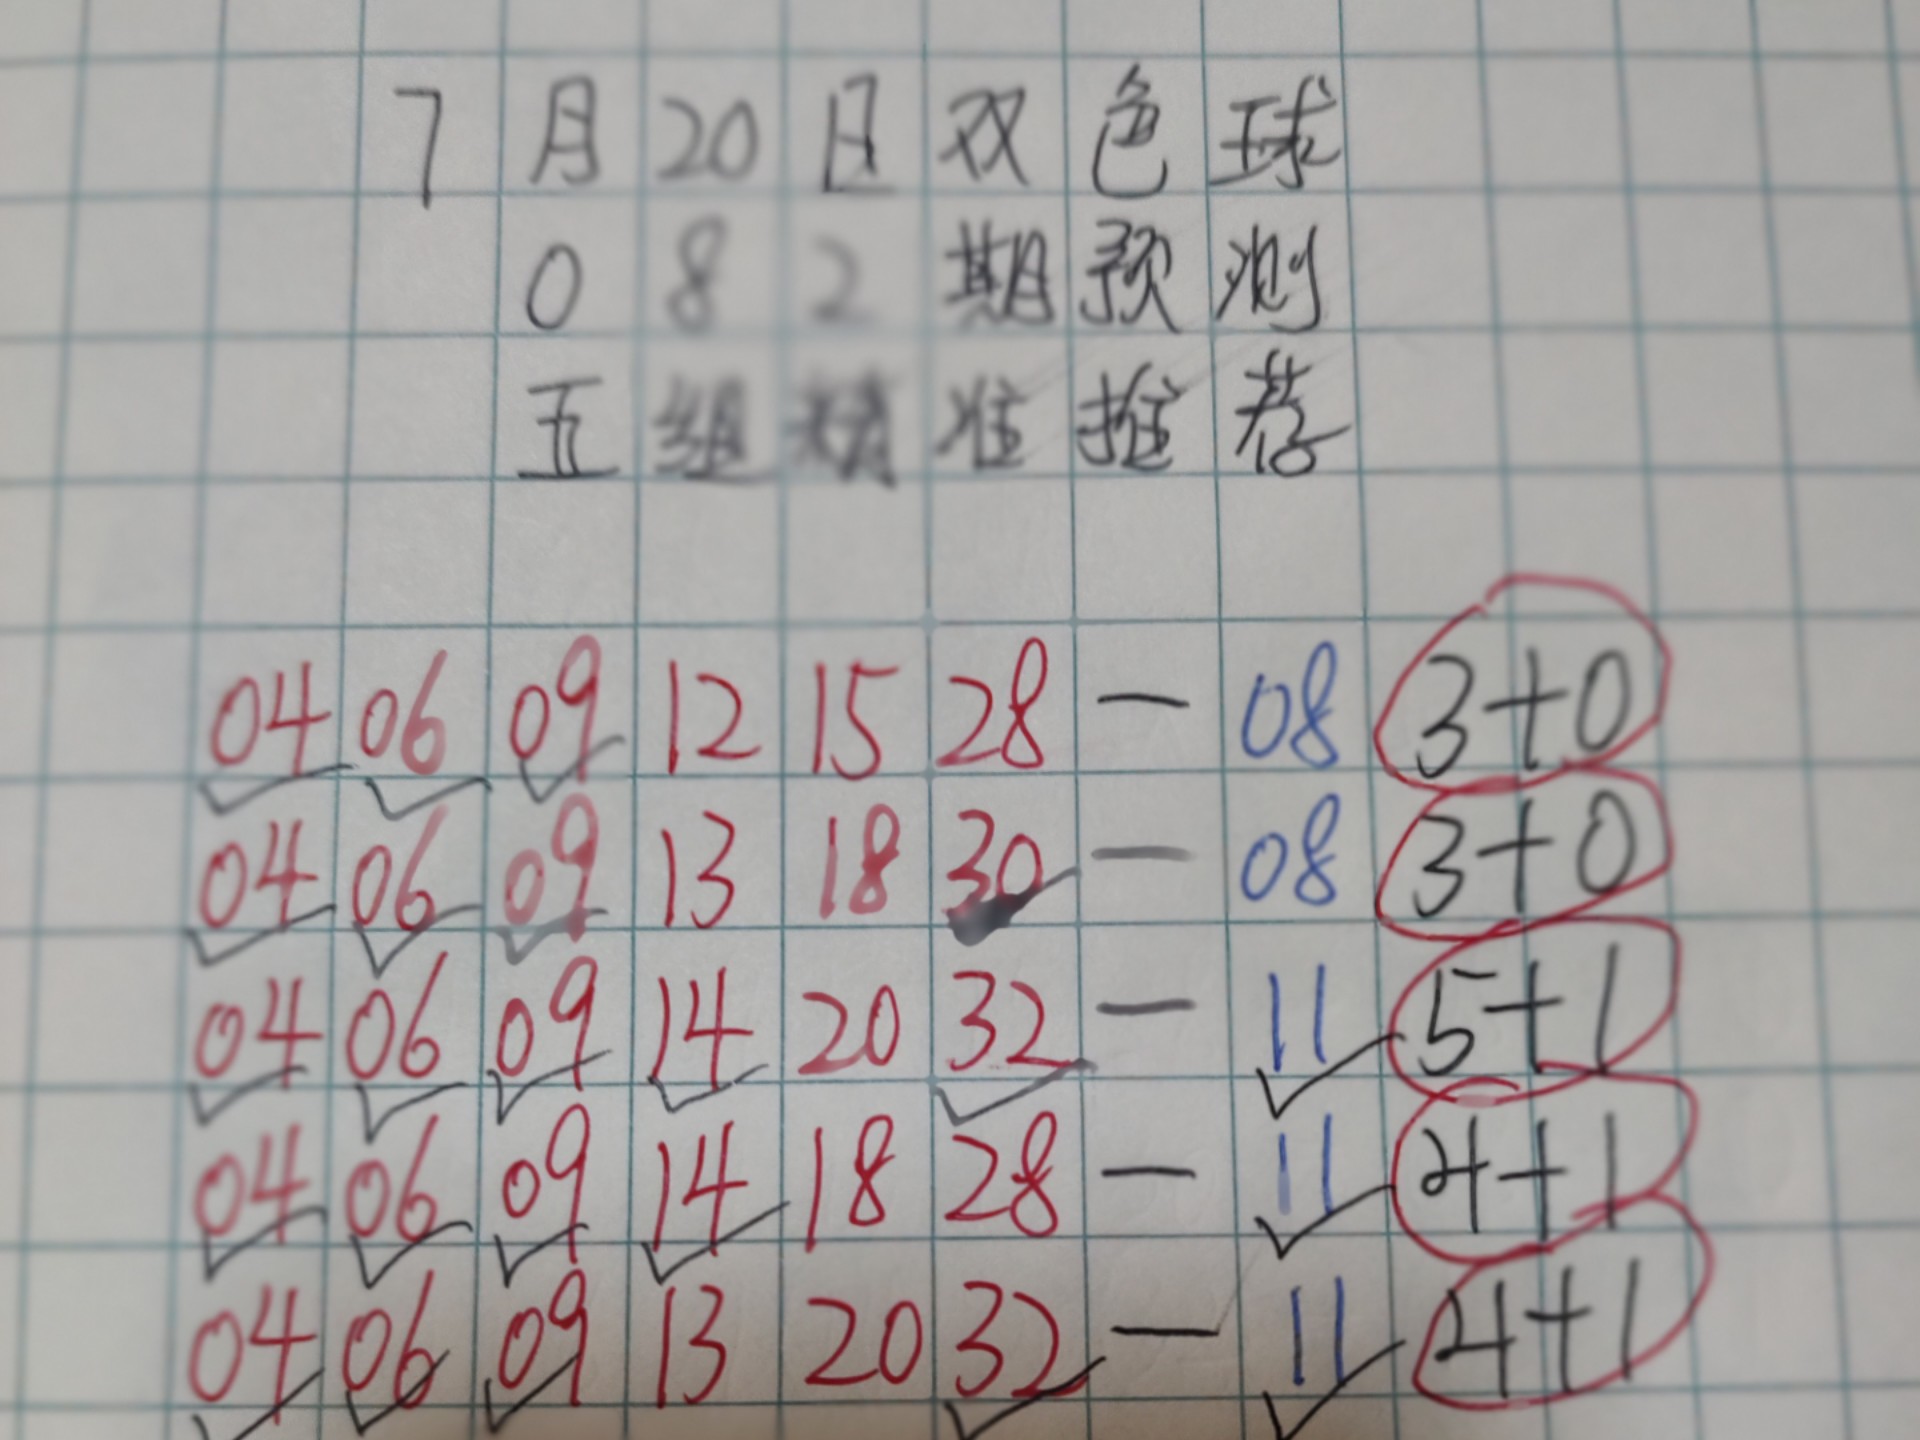 7月20日双色球
082期预测
五组精准推荐
04 06 09 12 15 28 — 08 3+0
04 06 09 13 18 30 — 08 3+0
04 06 09 14 20 32 — 11 5+1
04 06 09 14 18 28 — 11 4+1
04 06 09 13 20 32 — 11 4+1